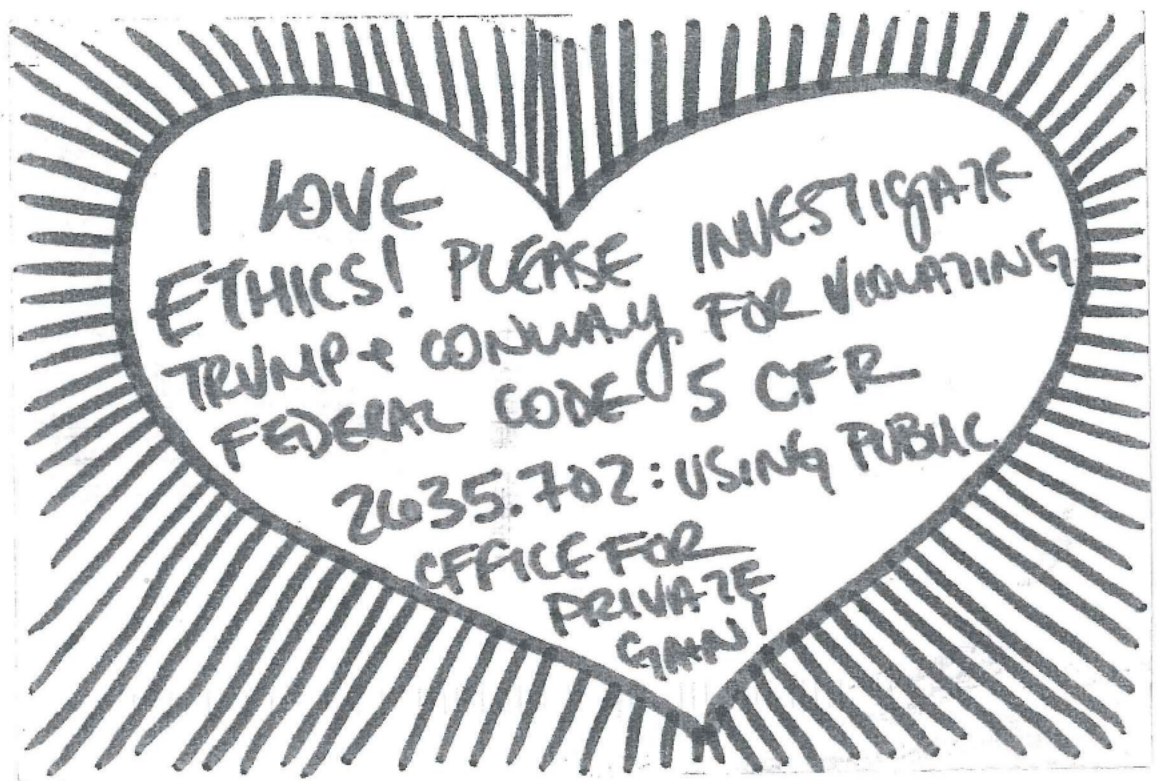 I LOVE
ETHICS! PLEASE INVESTIGATE
TRUMP & CONWAY FOR VIOLATING
FEDERAL CODE 5 CFR
2635.702: USING PUBLIC
OFFICE FOR
PRIVATE
GAIN!